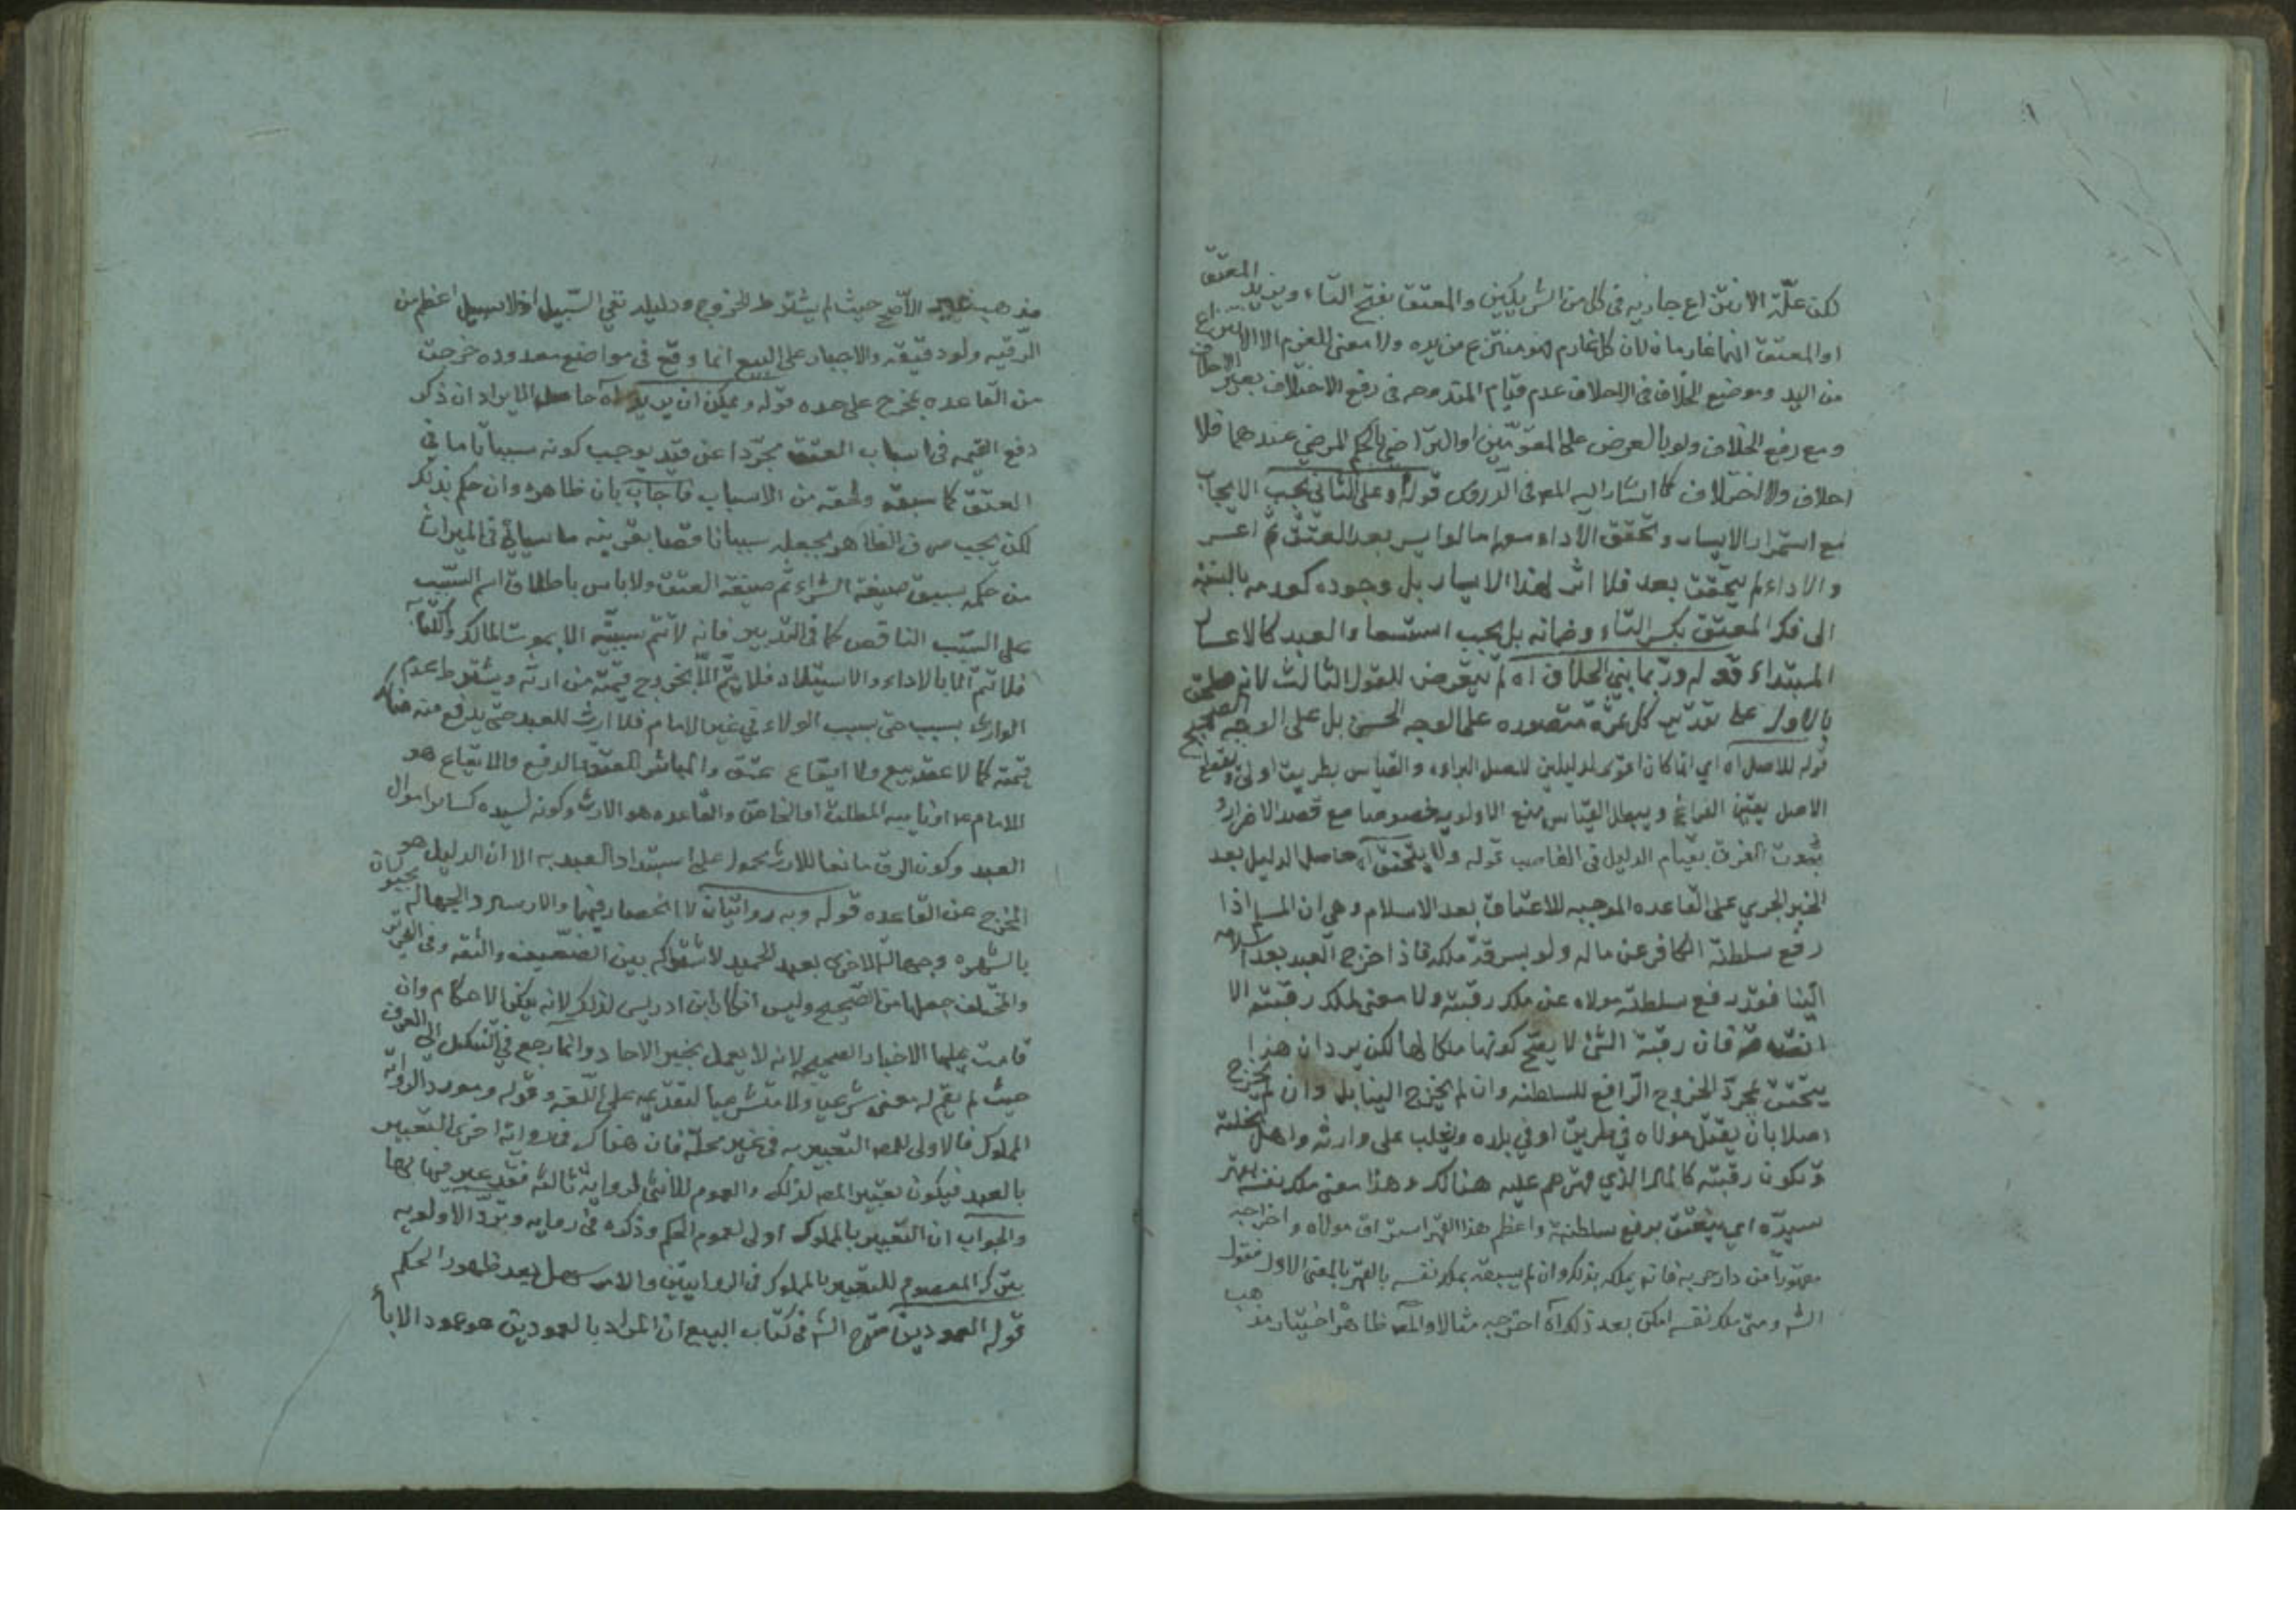 لكن علّة الانتزاع جاريه فى كل من الشريكين والمعتق بفتح التاء ويزيد المعتق
او المعتق انما غار مان لان كل غارم هو منتزع من يده ولا معنى للغرم الا الانتزاع
من اليد وموضع الخلاف فى الاحلاف عدم قيام المقدوحه فى رفع الاختلاف بغير الاحلاف
ومع رفع الخلاف ولو بالعرض على المقوّمين او التراضى بالحكم المرضى عندهما فلا
احلاف ولا اختلاف كما اشار اليه المص فى الدروس قوله وعلى الثانى يجب الايجاب
مع استمرار الايسار وتحقق الاداء معه اما لو ايسر بعد العتق ثم اعسر
والاداء لم يتحقق بعد فلا اثر لهذا الايسار بل وجوده كعدمه بالنسبة
الى فك المعتق بكسر التاء وضمانه بل يجب استسعاء العبد كالاعسار
المبتداء قوله وربما بنى الخلاف اه لم يتعرض للقول الثالث لانه ملحق
بالاول على تقدير كل ثمرة متصوره على الوجه الحسن بل على الوجه الصحيح
قوله للاصل اه اى انما كان اقوى لدليلين لاصل البراءه والقياس بطريق اولى ويقطع
الاصل يقين الفراغ ويبطل القياس منع الاولويه خصوصا مع قصد الاضرار و
ثبوت الفرق بقيام الدليل فى الغاصب قوله ولا يتحقق آه حاصل الدليل بعد
الخبر الجرى على القاعده الموجبه للاعتاق بعد الاسلام وهى ان المسلم اذا
رفع سلطنة الكافر عن ماله ولو بسرقة ملكه فاذا خرج العبد بعد اسلامه
الينا فقد رفع سلطنة مولاه عن ملك رقبته ولا معنى لملك رقبته الا
فان رقبة الشئ لا يصح كونها ملكا لها لكن يرد ان هذا
يتحقق بمجرد الخروج الرافع للسلطنه وان لم يخرج الينا بل وان لم يخرج
اصلا بان يقتل مولاه فى طريق او فى بلده ويغلب على وارثه واهل نحلته
وتكون رقبته كالمال الذى قهرهم عليه هنالك وهذا معنى ملك نفسه بقهر
سيدّه اى ينعتق برفع سلطنته واعظم هذا القهر استرقاق مولاه واخراجه
مقهورا من دار حربه فانه يملكه بذلك وان لم يسبقه بملك نفسه بالقهر بالمعنى الاول فقول
الش ومتى ملك نفسه امكن بعد ذلك آه اخرجه مثالا والمص ظاهرا اختيار مذهب
مذهب غير الأصح حيث لم يشترط الخروج ودليله نفى السّبيل اذ لا سبيل اعظم من
الرقيه ولو دقيقه والاجبار على البيع انما وقع فى مواضع معدوده خرجت
من القاعده بمخرج على حده قوله ويمكن ان يريد آه حاصل الايراد ان ذكر
دفع القيمه فى اسباب العتق مجرّدا عن قيد يوجب كونه سببا تاما فى
العتق كما سبقه ولحقه من الاسباب فاجاب بان ظاهره وان حكم بذلك
لكن يجب صرف الظاهر بجعله سببا ناقصا بقرينه ما سيأتى فى الميراث
من حكمه بسبق صيغة الشراء ثم صيغة العتق ولا باس باطلاق اسم السّبب
على السّبب الناقص كما فى التدبير فانه لا تتم سببيّه الا بموت المالك والكتابه
فلا تتم الا بالاداء والاستيلاد فلا يتم الّا بخروج قيمته من ارثه ويشترط عدم
الوارث بسبب حتى بسبب الولاء فى غير الامام فلا ارث للعبد حتى يدفع منه هناك
قيمته كما لا عقد بيع ولا ايقاع عتق والمباشر للعتق بالدفع والايقاع هو
الامام ع او نايبه المطلق او الخاص والقاعده هو الارث وكونه لسيده كساير اموال
العبد وكون الرق مانعا للارث محمول على استبداد العبد به الا ان الدليل هو
المخرج عن القاعده قوله وبه روايتان لا انحصار فيهما والارسال والجهاله يجبران
بالشهره وجهالة الاخرى بعبد الحميد لاشتراكه بين الضّعيف والثقه وفى التحرير
والمختلف جعلها من الصّحيح وليس انكار ابن ادريس لذلك لانه ينكر الاحكام وان
قامت عليها الاخبار الصحيحه لانه لا يعمل بخبر الاحاد وانما رجع فى التنكيل الى العرف
حيث لم يقم له معنى شرعيا ولا متشرعيا لتقدّمه على اللّغه وقوله ومورد الروايه
المملوك فالاولى للمص التعبير به فى غير محلّه فان هناك فى رواية اخرى التعبير
بالعبد فيكون تعبير المص لذلك والعموم للانثى لرواية ثالثه فقد عبر فيها بها
والجواب ان التعبير بالمملوك اولى لعموم الحكم وذكره فى روايه وتردّ الاولويه
بترك المعصوم للتعبير بالمملوك فى الروايتين والامر سهل بعد ظهور الحكم
قوله العمودين صرح الش فى كتاب البيع ان المراد بالعمودين هو عمود الابأ